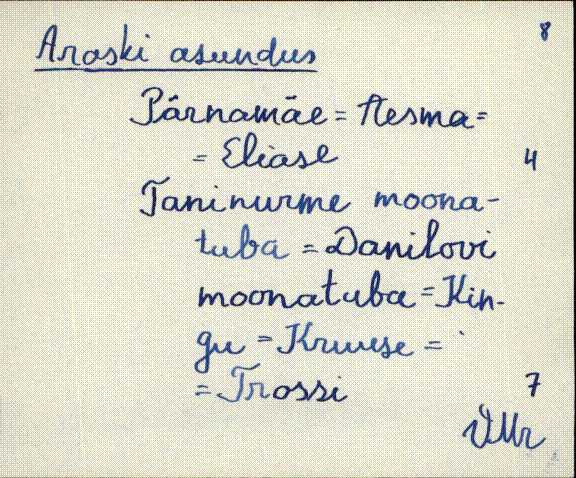 8
Araski asundus
Pärnamäe = Aesma =
= Eliase 4
Taninurme moona-
tuba = Danilovi
moonatuba = Kin-
gu = Kruuse =
= Trossi 7